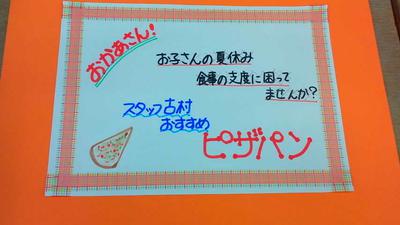 おかあさん!
お子さんの夏休み
食事の支度に困って
ませんか?
スタッフ古村
おすすめ
ピザパン